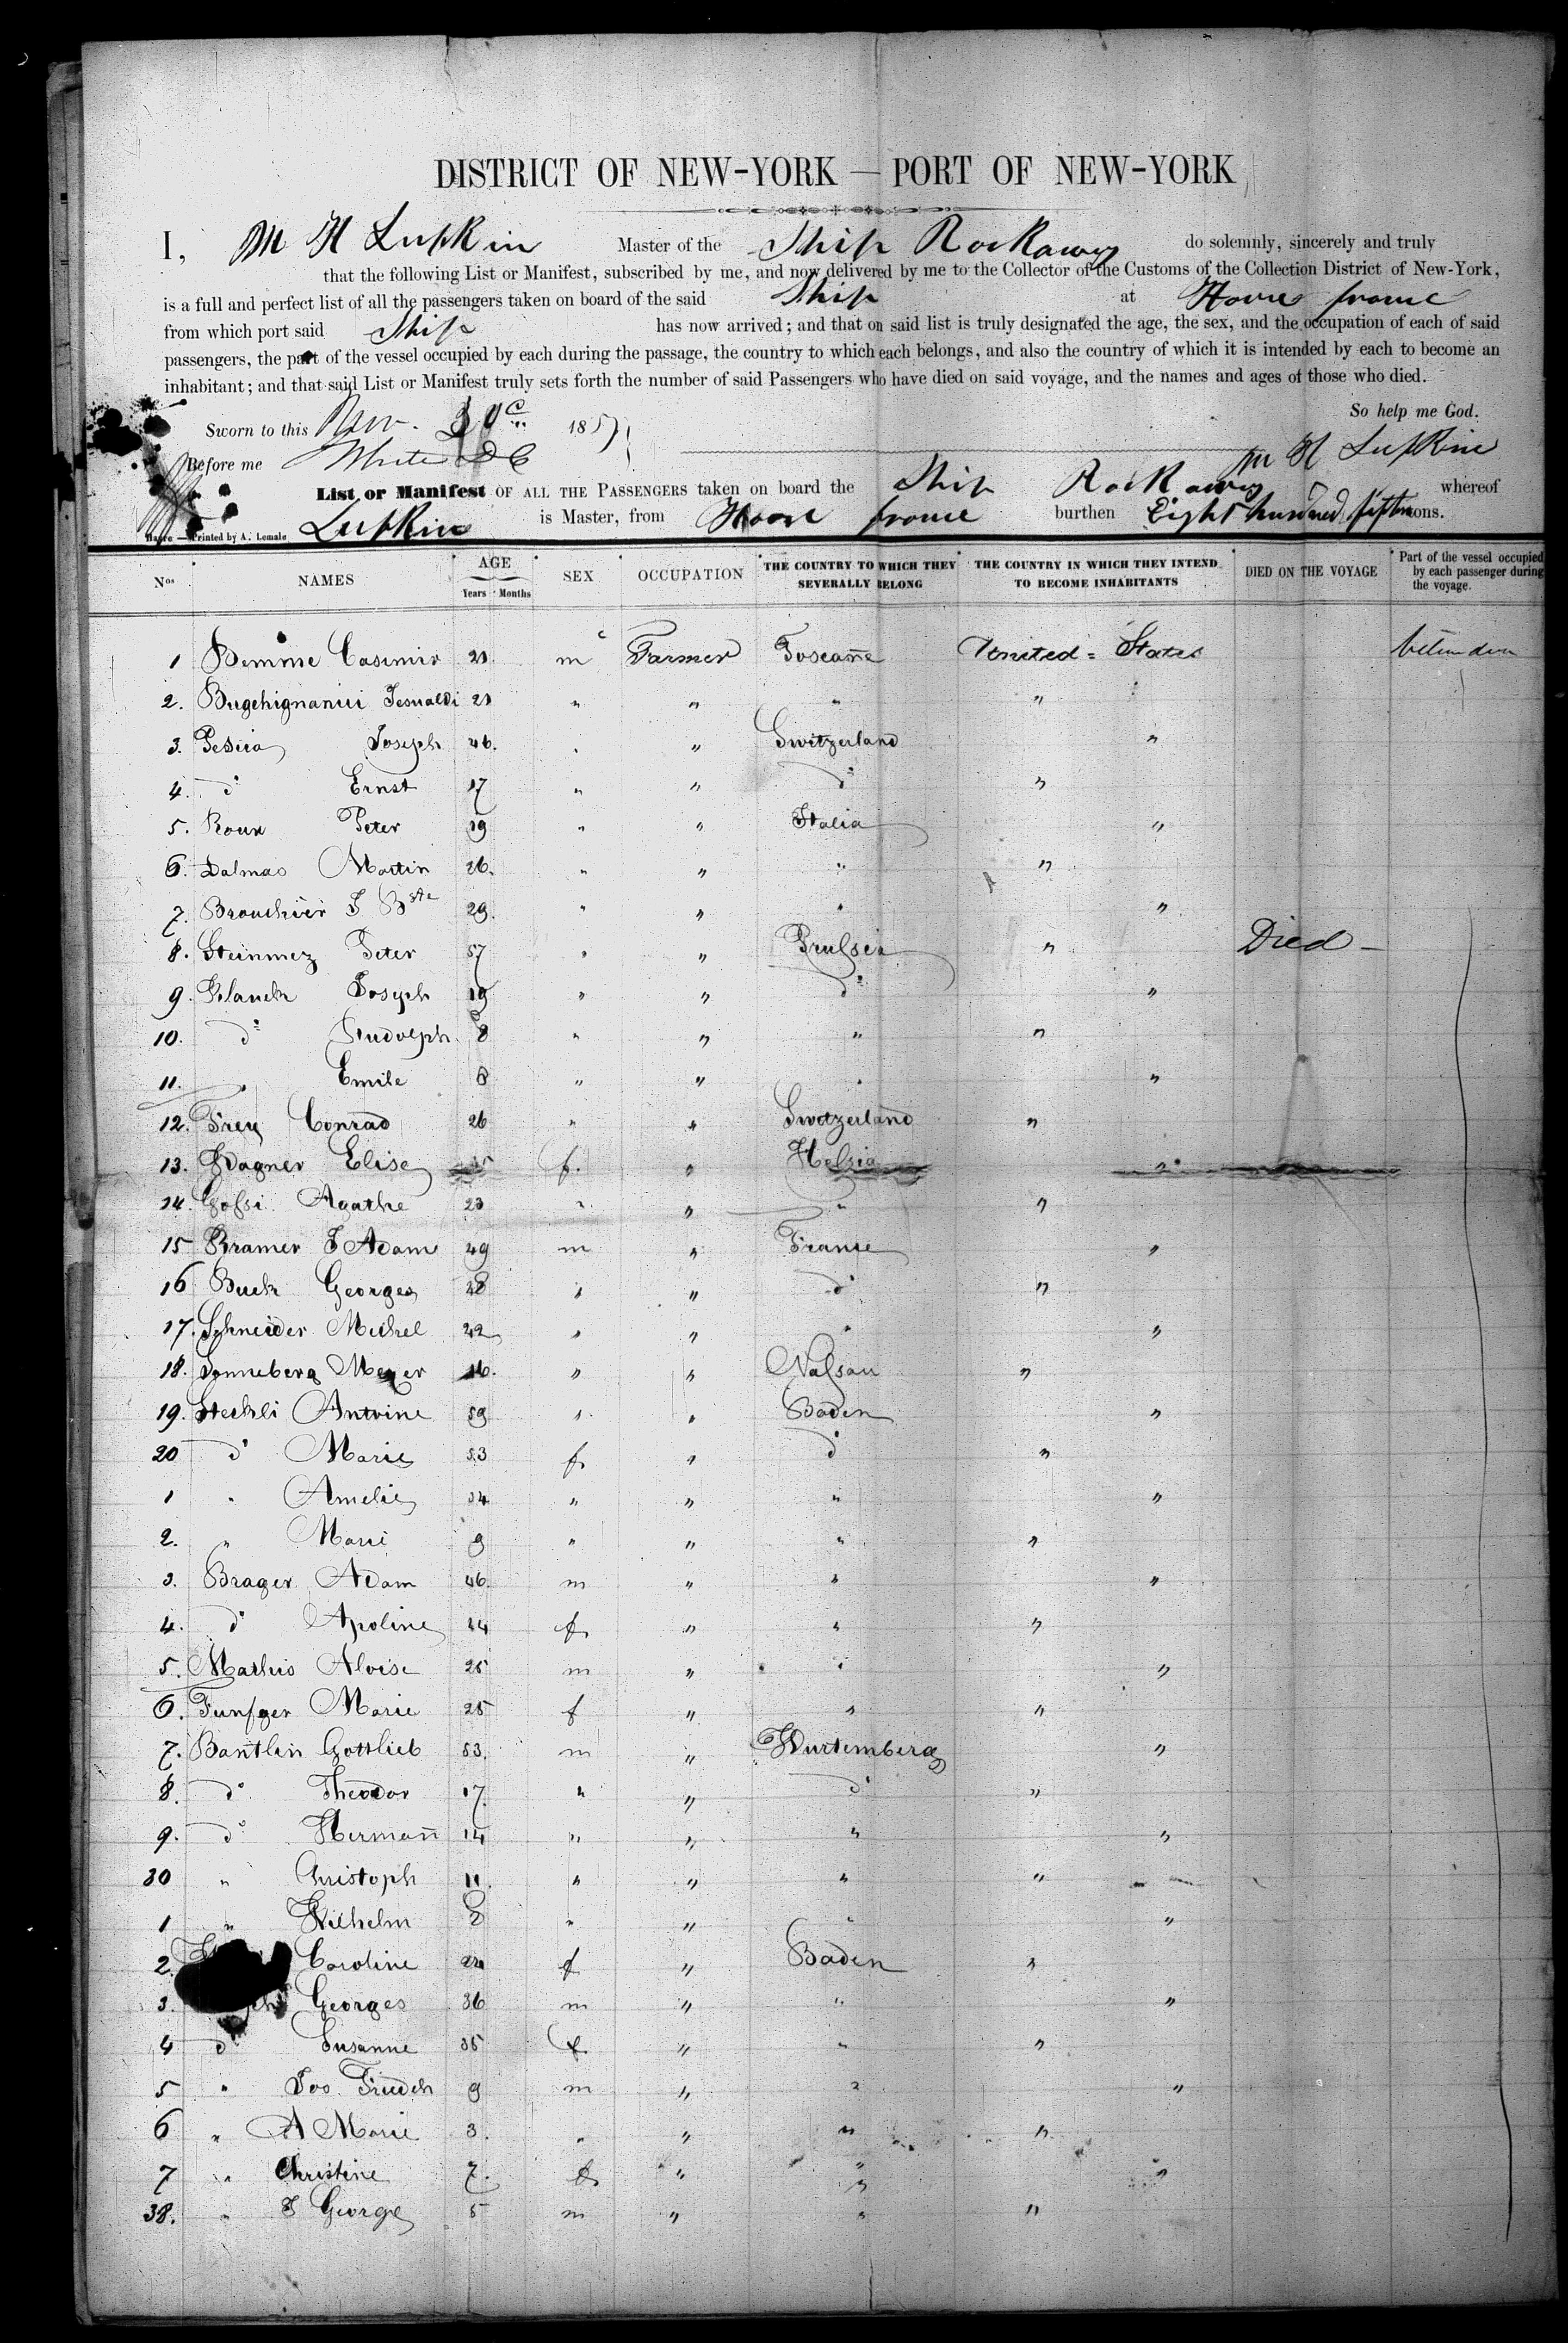 DISTRICT OF NEW-YORK — PORT OF NEW-YORK
I, M H Lufkin Master of the Ship Rockaway do solemnly, sincerely and truly
that the following List or Manifest, subscribed by me, and now delivered by me to the Collector of the Customs of the Collection District of New-York,
is a full and perfect list of all the passengers taken on board of the said Ship at Havre france
from which port said Ship has now arrived; and that on said list is truly designated the age, the sex, and the occupation of each of said
passengers, the part of the vessel occupied by each during the passage, the country to which each belongs, and also the country of which it is intended by each to become an
inhabitant; and that said List or Manifest truly sets forth the number of said Passengers who have died on said voyage, and the names and ages of those who died.
So help me God.
Sworn to this Nov. 185
Before me White DC M H Lufkin
List or Manifest OF ALL THE PASSENGERS taken on board the Ship Rockaway whereof
Lufkin is Master, from Havre france burthen Eight hundred fifty tons.
Havre — Printed by A. Lemale
Nos NAMES AGE Years Months SEX OCCUPATION THE COUNTRY TO WHICH THEY SEVERALLY BELONG THE COUNTRY IN WHICH THEY INTEND TO BECOME INHABITANTS DIED ON THE VOYAGE Part of the vessel occupied by each passenger during the voyage.
1 Casimir 21 m Farmer Toscane United = States
2. 21 " " " "
3. Joseph 46. " " Switzerland "
4. do Ernst 17 " " do "
5. Roux Peter 19 " " Italia "
6. Dalmas Martin 26. " " " "
7. Brouchier J Bste 29. " " " "
8. Steinmez Peter 57 " " Prussia " Died —
9. Joseph 19 " " do "
10. do Rudolph 8 " " " "
11. " Emile 6 " " " "
12. Frey Conrad 26 " " Switzerland "
13. Wagner Elise f. " "
14. Agathe 23 " " " "
15 Kramer J Adam 49 m " France "
16 Buck Georges 28 " " do "
17. Schneider Michel 42 " " " "
18. Sonneberg Meyer 16. " " Nassau "
19. Steckli Antoine 59 " " Baden "
20 do Marie 53 f. " do "
1 " Amelie 34 " " " "
2. " Marie 9 " " " "
3. Brager Adam 46. m " " "
4. do Apoline 44 f. " " "
5. Mathis Aloise 25 m " " "
6. Funfger Marie 25 f " " "
7. Bantlin Gottlieb 53. m " Wurtemberg "
8. do Theodor 17. " " do "
9. do Hermann 14 " " " "
30 " Christoph 11. " " " "
1 " Wilhelm 8 " " " "
2. Caroline 22 f " Baden "
3. Georges 36 m " " "
4 do Susanne 35 f. " " "
5 " Friedch 9 m " " "
6 " A Marie 3. " " " "
7 " Christine 7. f " " "
38. " J George 5 m " " "